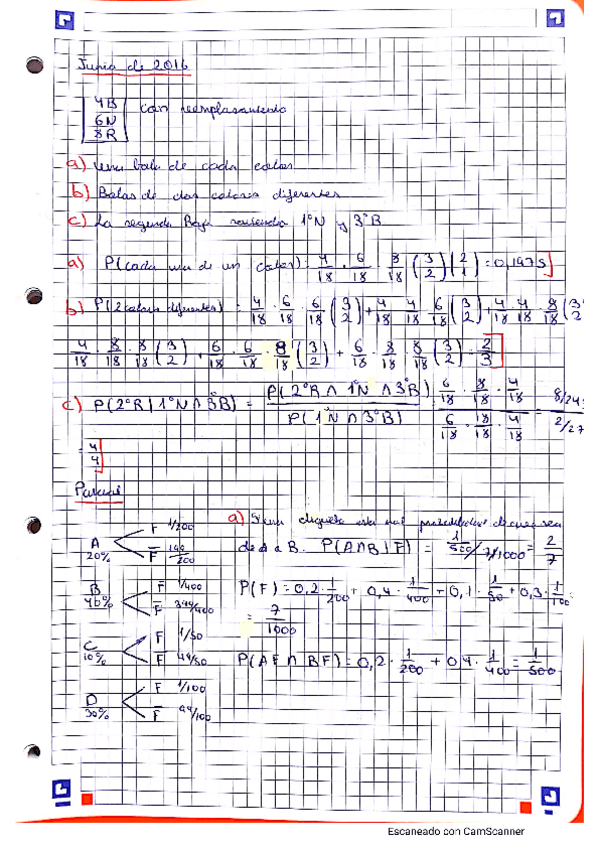 Junio de 2016
4B
6N
8R
con reemplazamiento
a) Una bola de cada color
b) Bolas de dos colores diferentes
c) La segunda Roja sabiendo 1ºN y 3ºB
a) P(cada una de un color) = 4/18 · 6/18 · 8/18 (3 2)(2 1) = 0,1975
b) P(2 colores diferentes) = 4/18 · 6/18 · 6/18 (3 2) + 4/18 · 4/18 · 6/18 (3 2) + 4/18 · 4/18 · 8/18 (3 2
4/18 · 8/18 · 8/18 (3 2) + 6/18 · 6/18 · 8/18 (3 2) + 6/18 · 8/18 · 8/18 (3 2) = 2/3
c) P(2ºR | 1ºN ∩ 3ºB) = P(2ºR ∩ 1ºN ∩ 3ºB) / P(1ºN ∩ 3ºB) = 6/18 · 8/18 · 4/18 / 6/18 · 18/18 · 4/18 = 8/243 / 2/27
= 4/9
A 20% F 1/200
F̅ 199/200
B 40% F 1/400
F̅ 399/400
C 10% F 1/50
F̅ 49/50
D 30% F 1/100
F̅ 99/100
a) Si una etiqueta esta mal probabilidad de que sea
de A a B. P(A∩B | F) = 1/500 / 7/1000 = 2/7
P(F) = 0,2 · 1/200 + 0,4 · 1/400 + 0,1 · 1/50 + 0,3 · 1/100
= 7/1000
P(AF ∩ BF) = 0,2 · 1/200 + 0,4 · 1/400 = 1/500
Escaneado con CamScanner